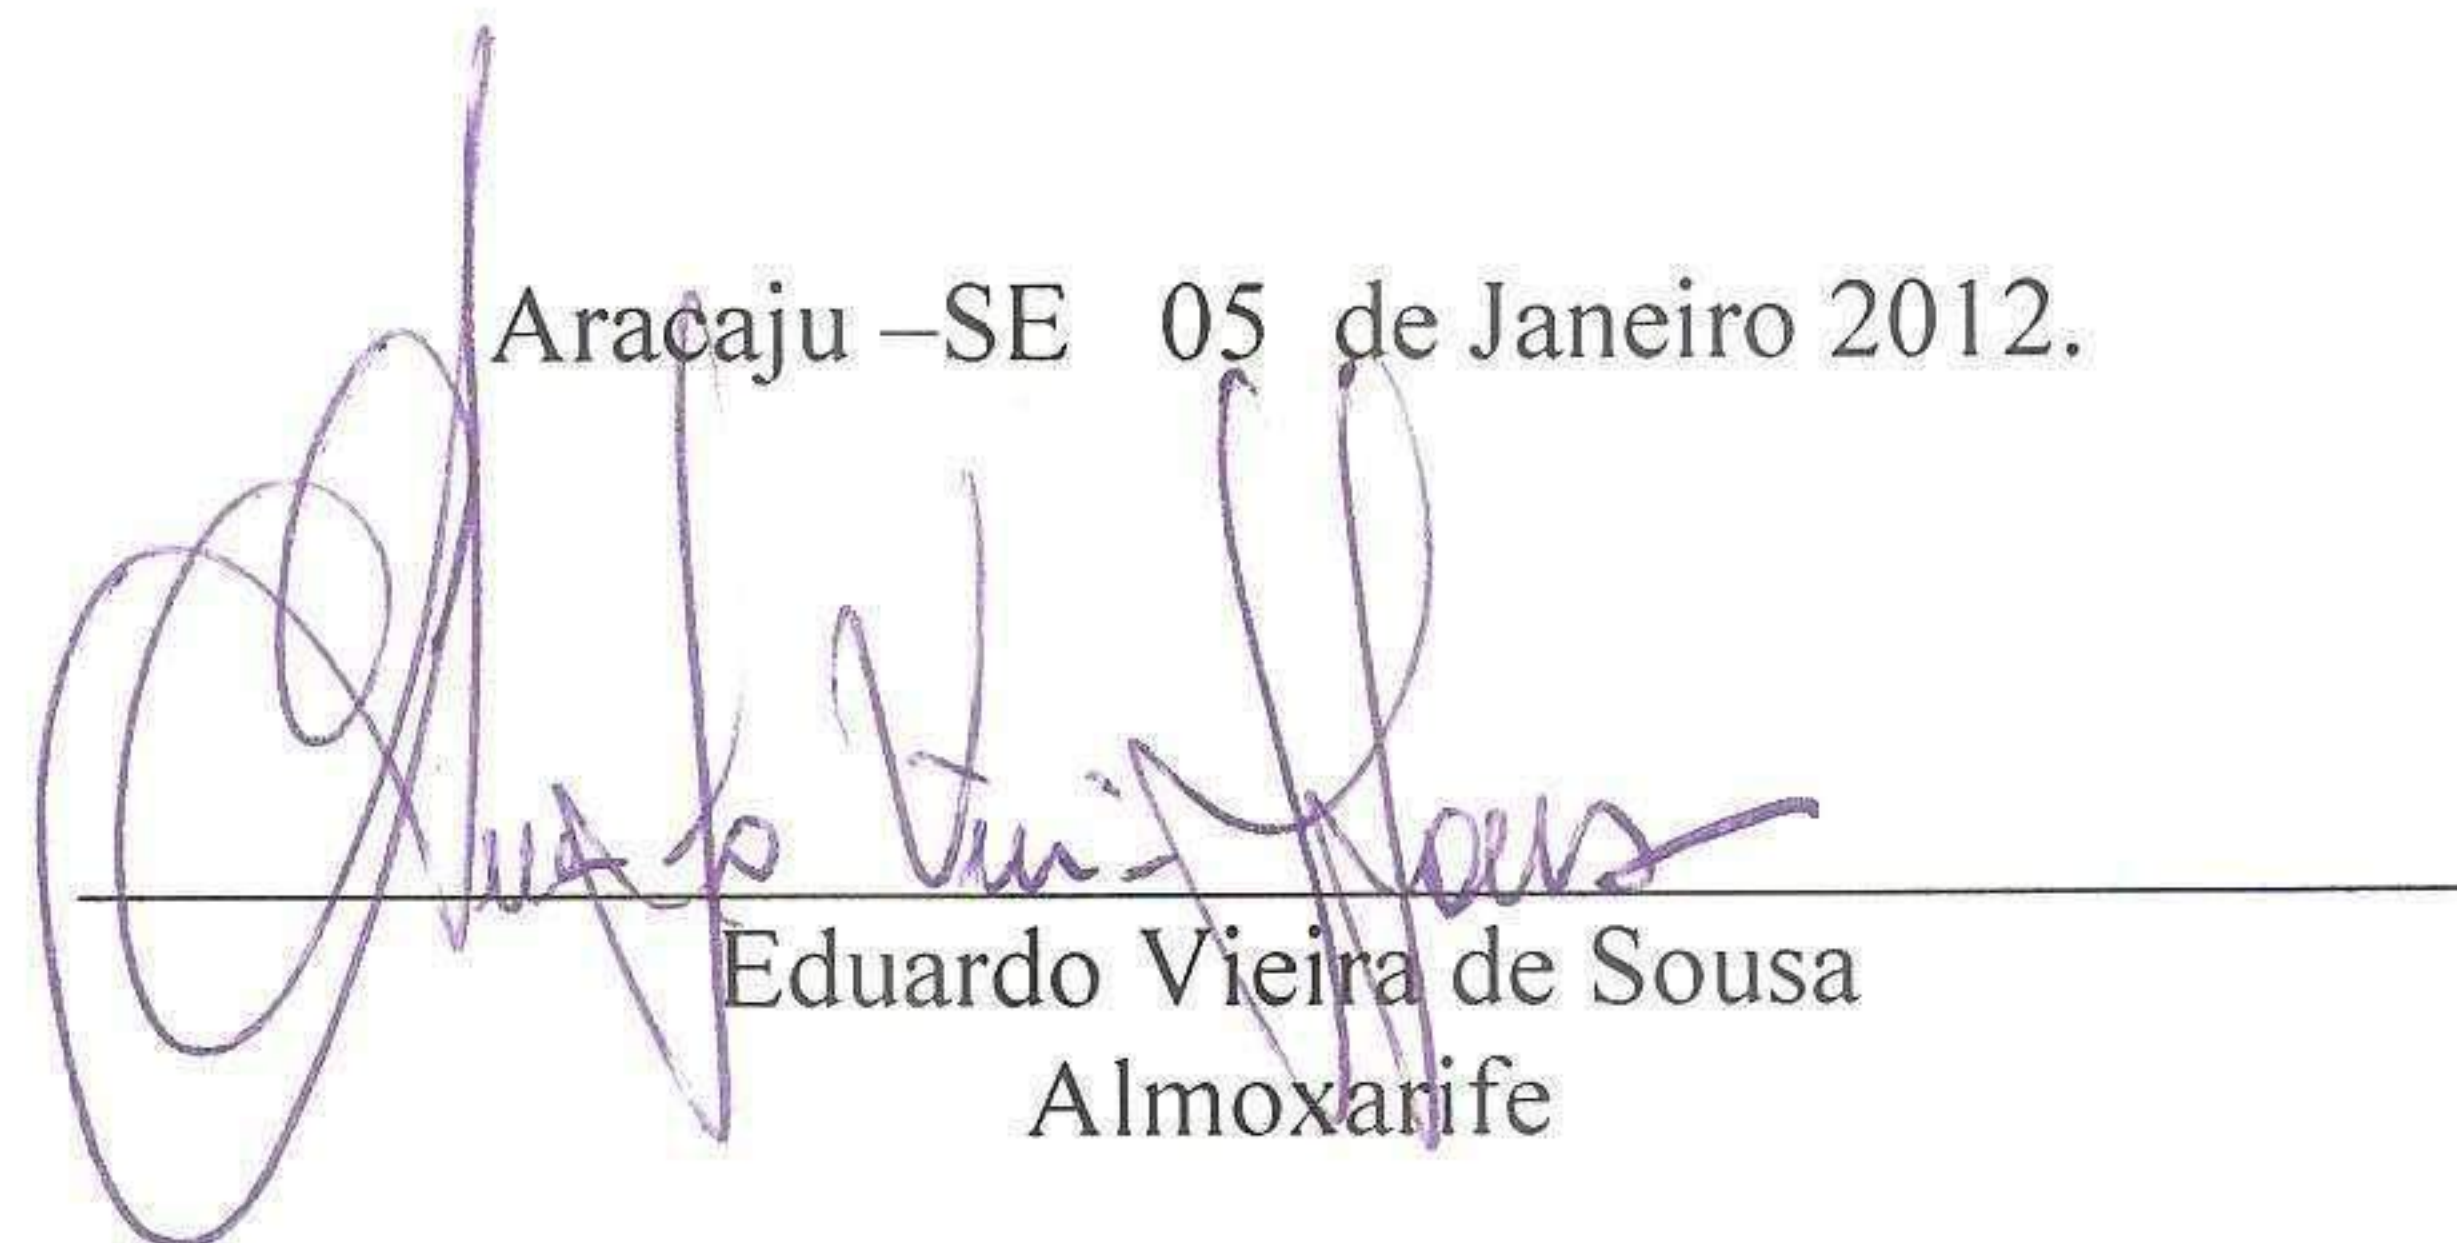 Aracaju –SE 05 de Janeiro 2012.
Eduardo Vieira de Sousa
Almoxarife